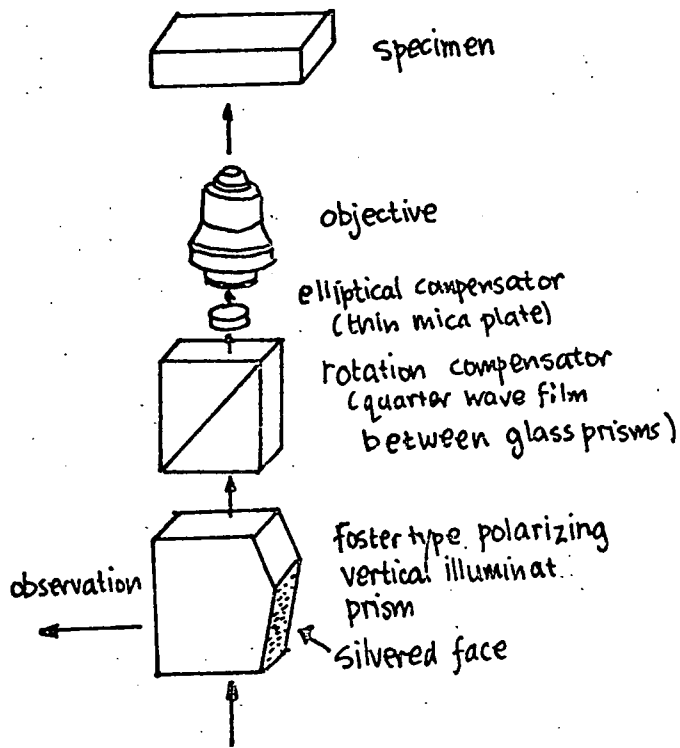 specimen
objective
elliptical compensator
(thin mica plate)
rotation compensator
(quarter wave film
between glass prisms)
foster type polarizing
vertical illuminat.
prism
observation
silvered face